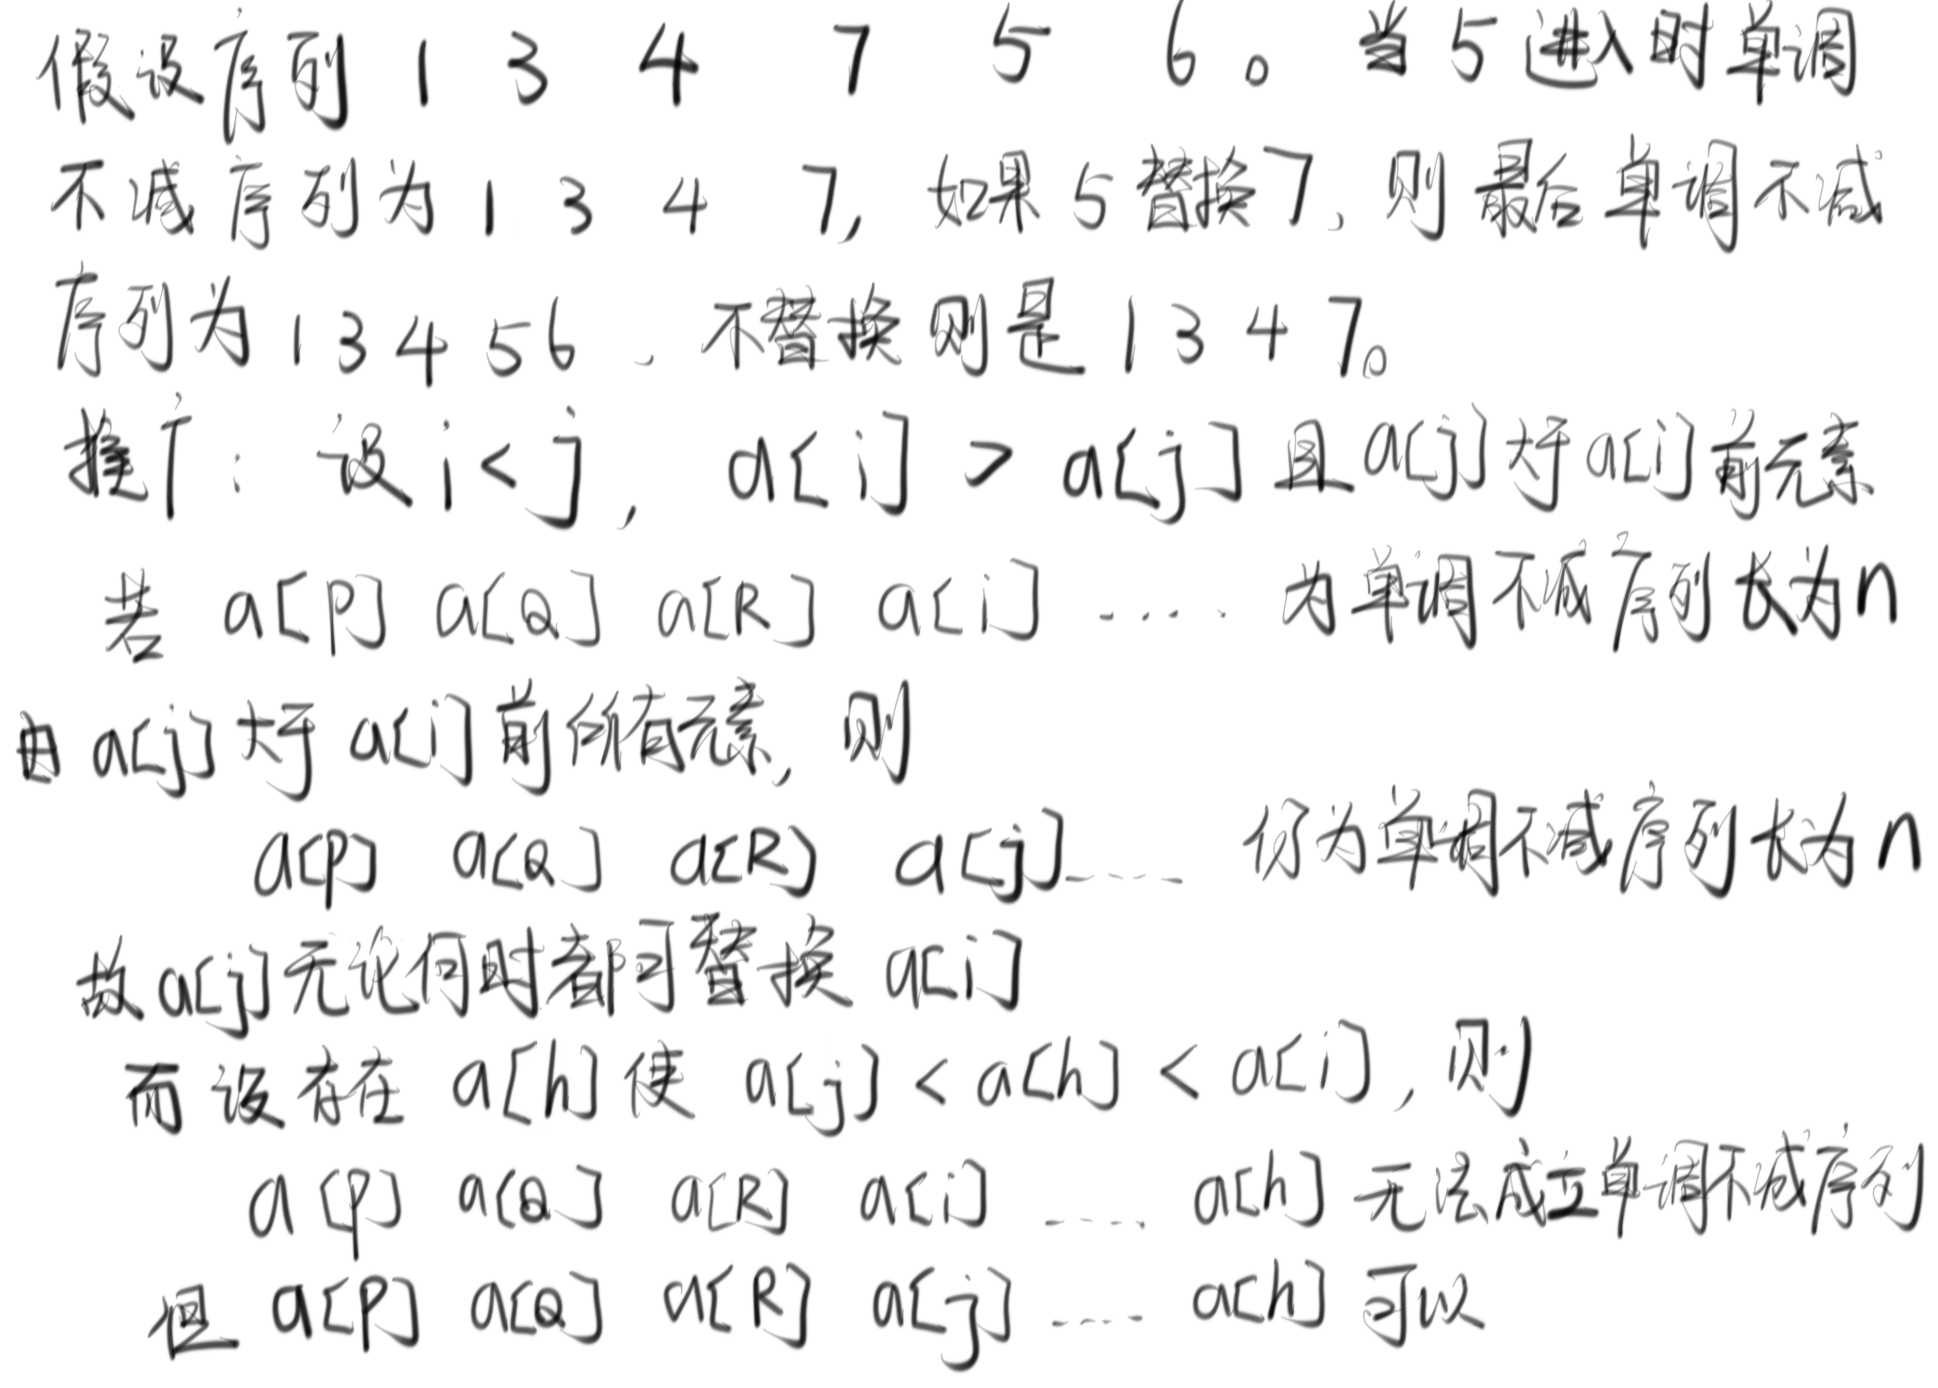 假设序列 1 3 4 7 5 6。当5进入时单调
不减序列为 1 3 4 7, 如果5替换7, 则最后单调不减
序列为 1 3 4 5 6 、不替换则是 1 3 4 7。
推广: 设 i < j, a[i] > a[j] 且 a[j] 大于 a[i] 前元素
若 a[P] a[Q] a[R] a[i] ..... 为单调不减序列长为n
由 a[j] 大于 a[i] 前所有元素, 则
a[P] a[Q] a[R] a[j] ..... 仍为单调不减序列长为n
故 a[j] 无论何时都可替换 a[i]
而设存在 a[h] 使 a[j] < a[h] < a[i], 则
a[P] a[Q] a[R] a[i] ..... a[h] 无法成立单调不减序列
但 a[P] a[Q] a[R] a[j] ..... a[h] 可以